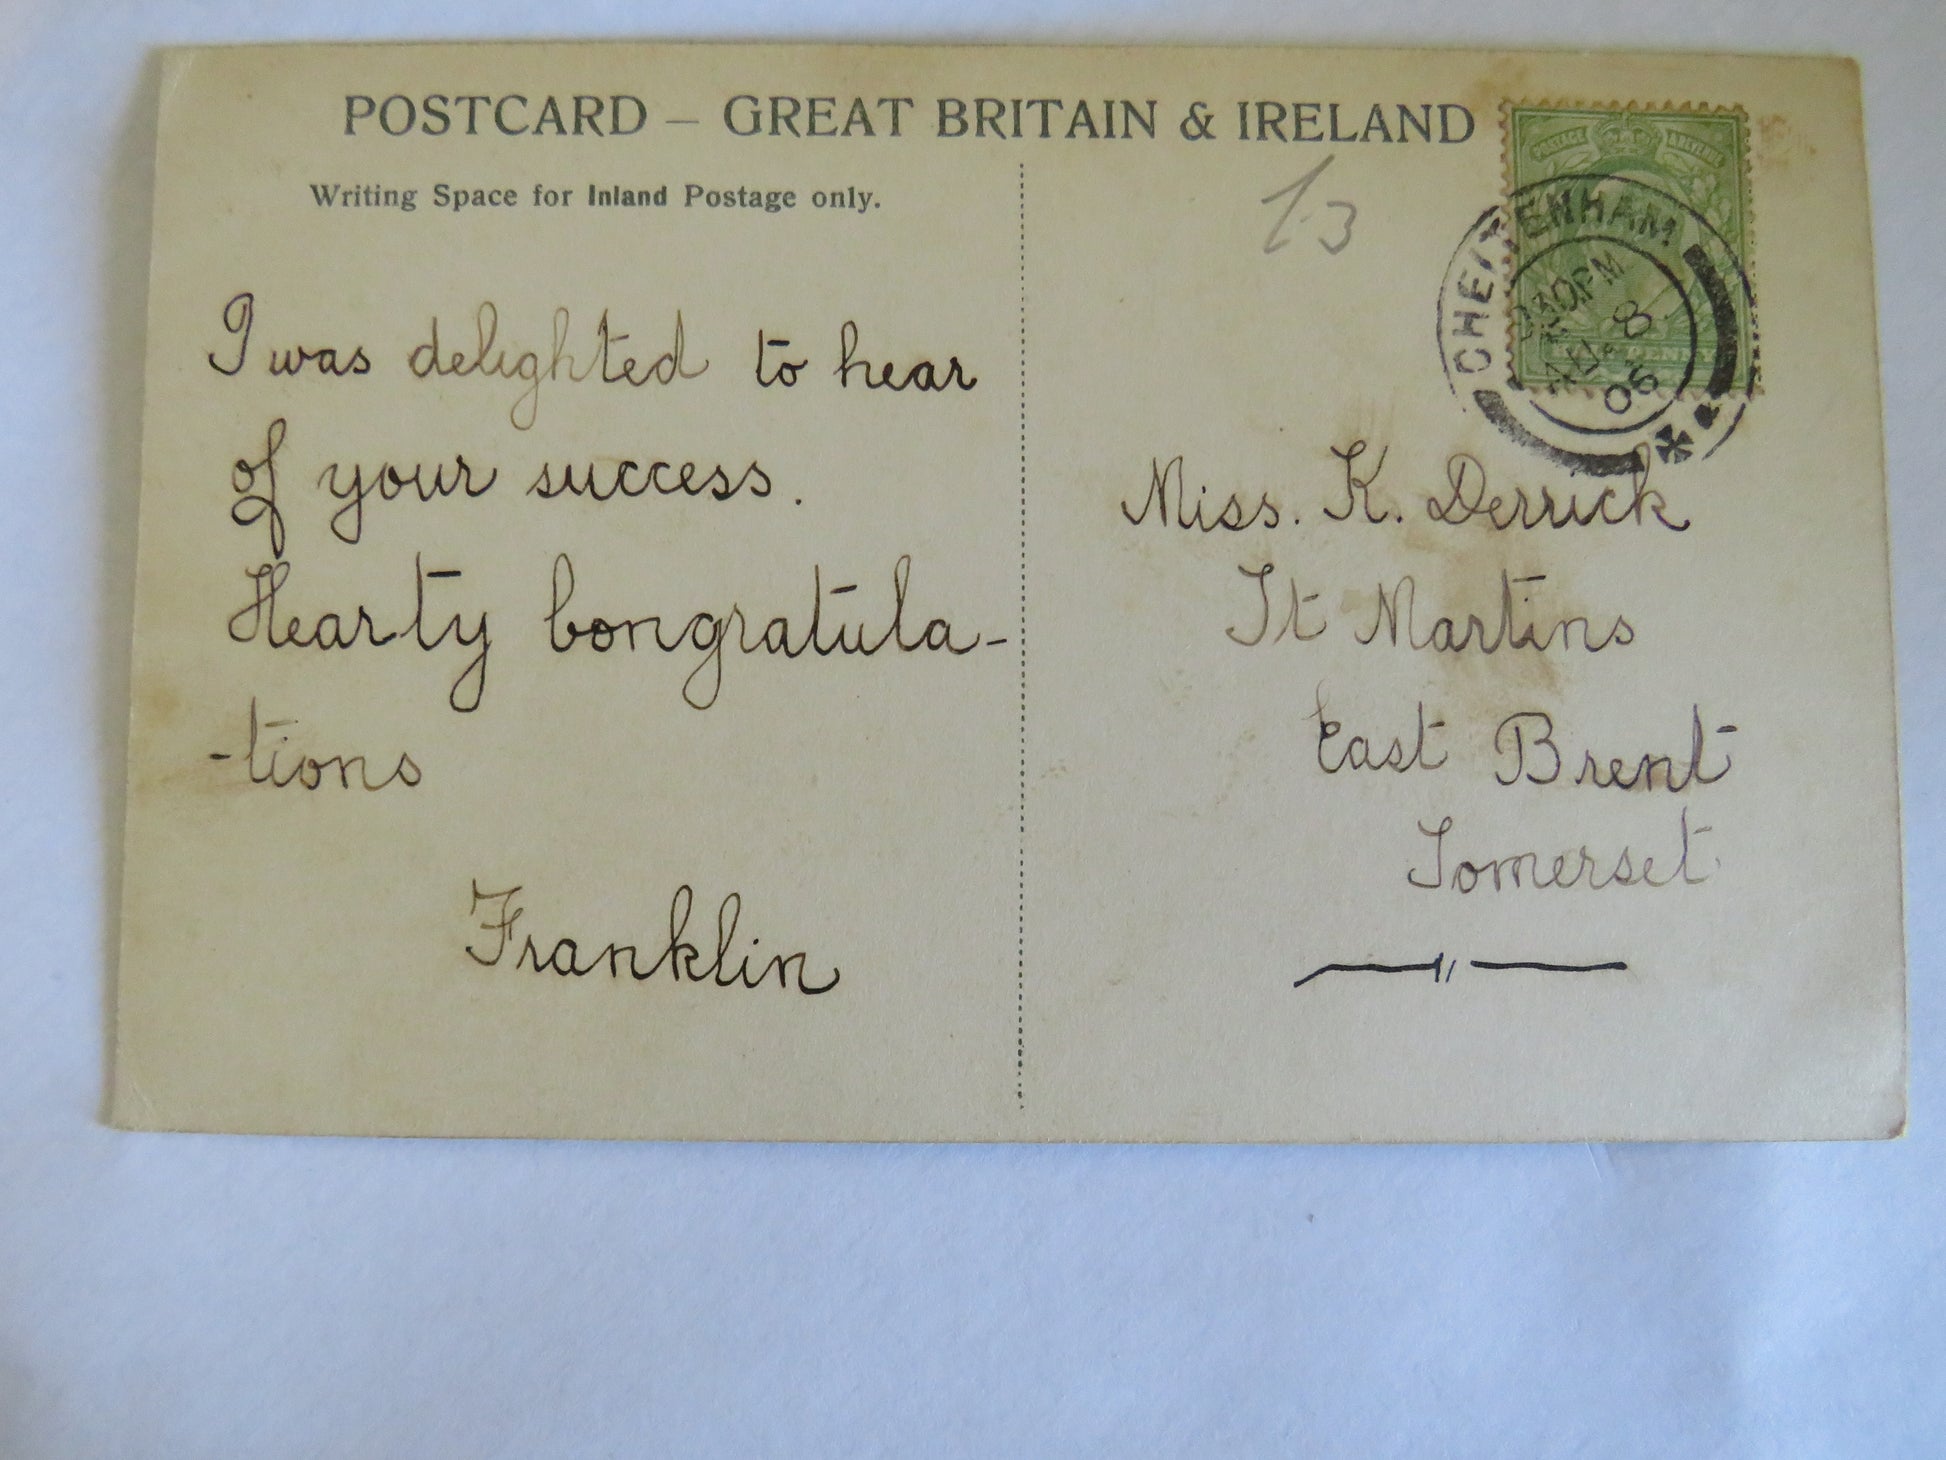 POSTCARD – GREAT BRITAIN & IRELAND
Writing Space for Inland Postage only.
I was delighted to hear
of your success.
Hearty Congratula-
-tions
Franklin
13
POSTAGE
CHELTENHAM
30PM
AU 8
06
Miss. K. Derrick
St Martins
East Brent
Somerset